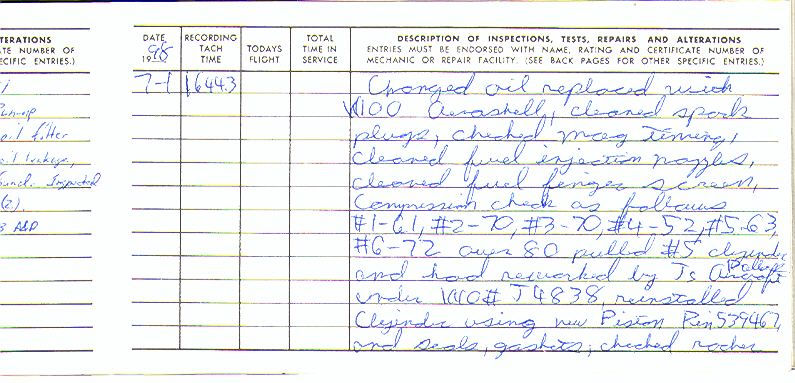 TERATIONS
TE NUMBER OF
ECIFIC ENTRIES.)
Run-up
oil filter
oil leakage,
found. Inspected
(2).
3 A&P
DATE
1998
RECORDING
TACH
TIME
TODAYS
FLIGHT
TOTAL
TIME IN
SERVICE
DESCRIPTION OF INSPECTIONS, TESTS, REPAIRS AND ALTERATIONS
ENTRIES MUST BE ENDORSED WITH NAME, RATING AND CERTIFICATE NUMBER OF
MECHANIC OR REPAIR FACILITY. (SEE BACK PAGES FOR OTHER SPECIFIC ENTRIES.)
7-1 1644.3 Changed oil replaced with
W100 Aeroshell, cleaned spark
plugs, checked mag timing,
cleaned fuel injection nozzles,
cleaned fuel finger screen,
Compression check as follows
#1-61, #2-70, #3-70, #4-52, #5-63,
#6-72 over 80 pulled #5 clyinder
and had reworked by Js Aircraft
under WO# J4838, reinstalled
Clyinder using new Piston Pin 539467,
and seals, gaskets; checked rocker